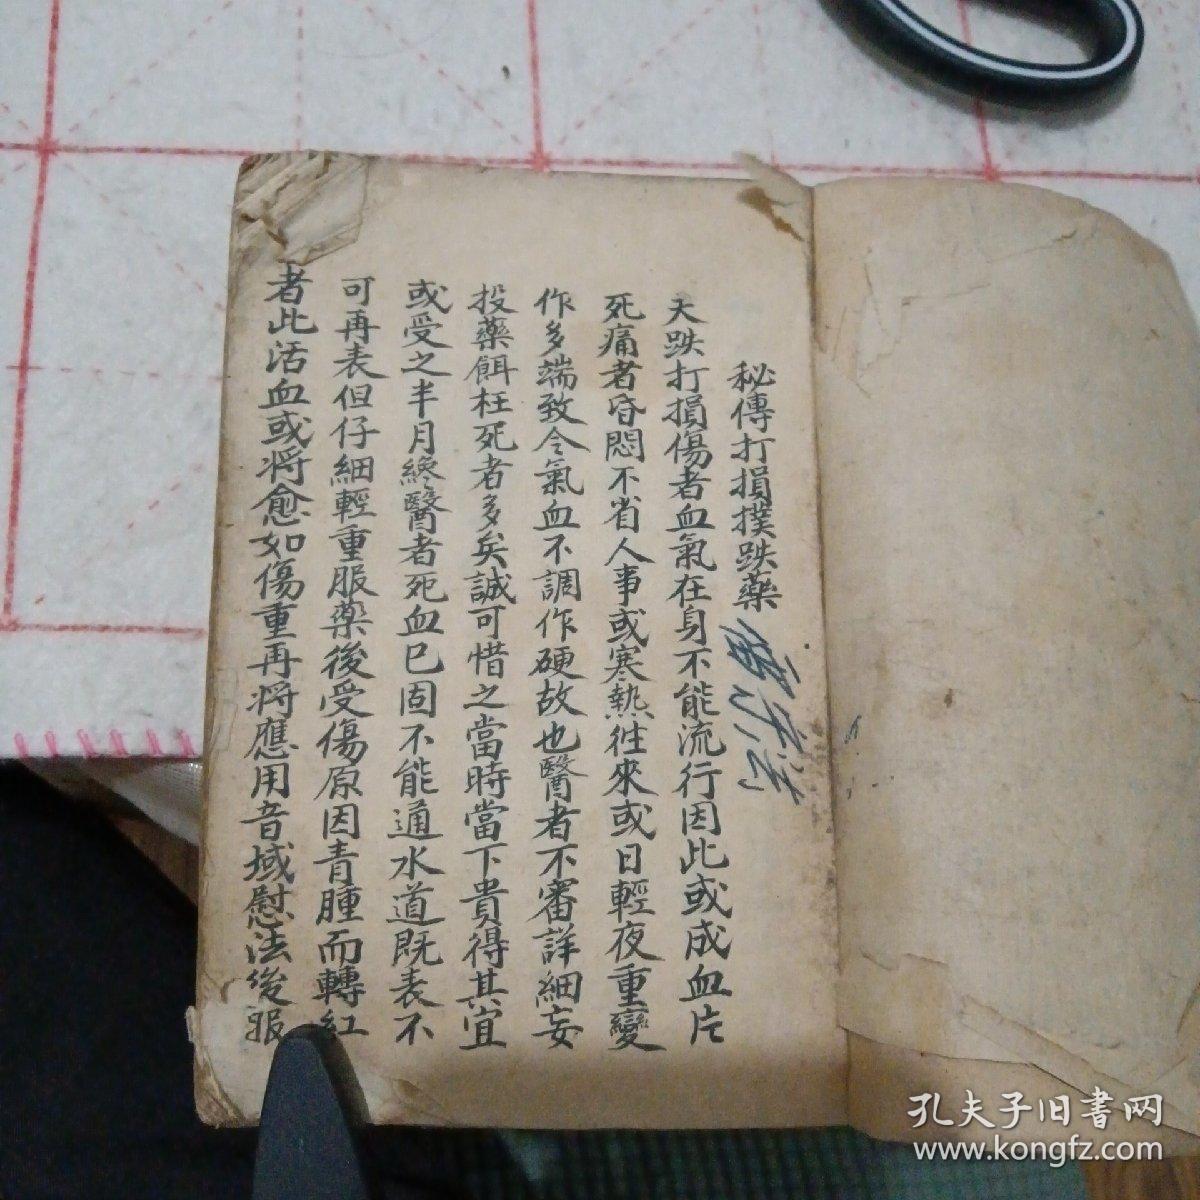 秘傳打損撲跌藥
夫跌打損傷者血氣在身不能流行因此或成血片
死痛者昏悶不省人事或寒熱往來或日輕夜重變
作多端致令氣血不調作硬故也醫者不審詳細妄
投藥餌枉死者多矣誠可惜之當時當下貴得其宜
或受之半月纔醫者死血已固不能通水道既表不
可再表但仔細輕重服藥後受傷原因青腫而轉紅
者此活血或将愈如傷重再将應用音域慰法後服
孔夫子旧書网
www.kongfz.com